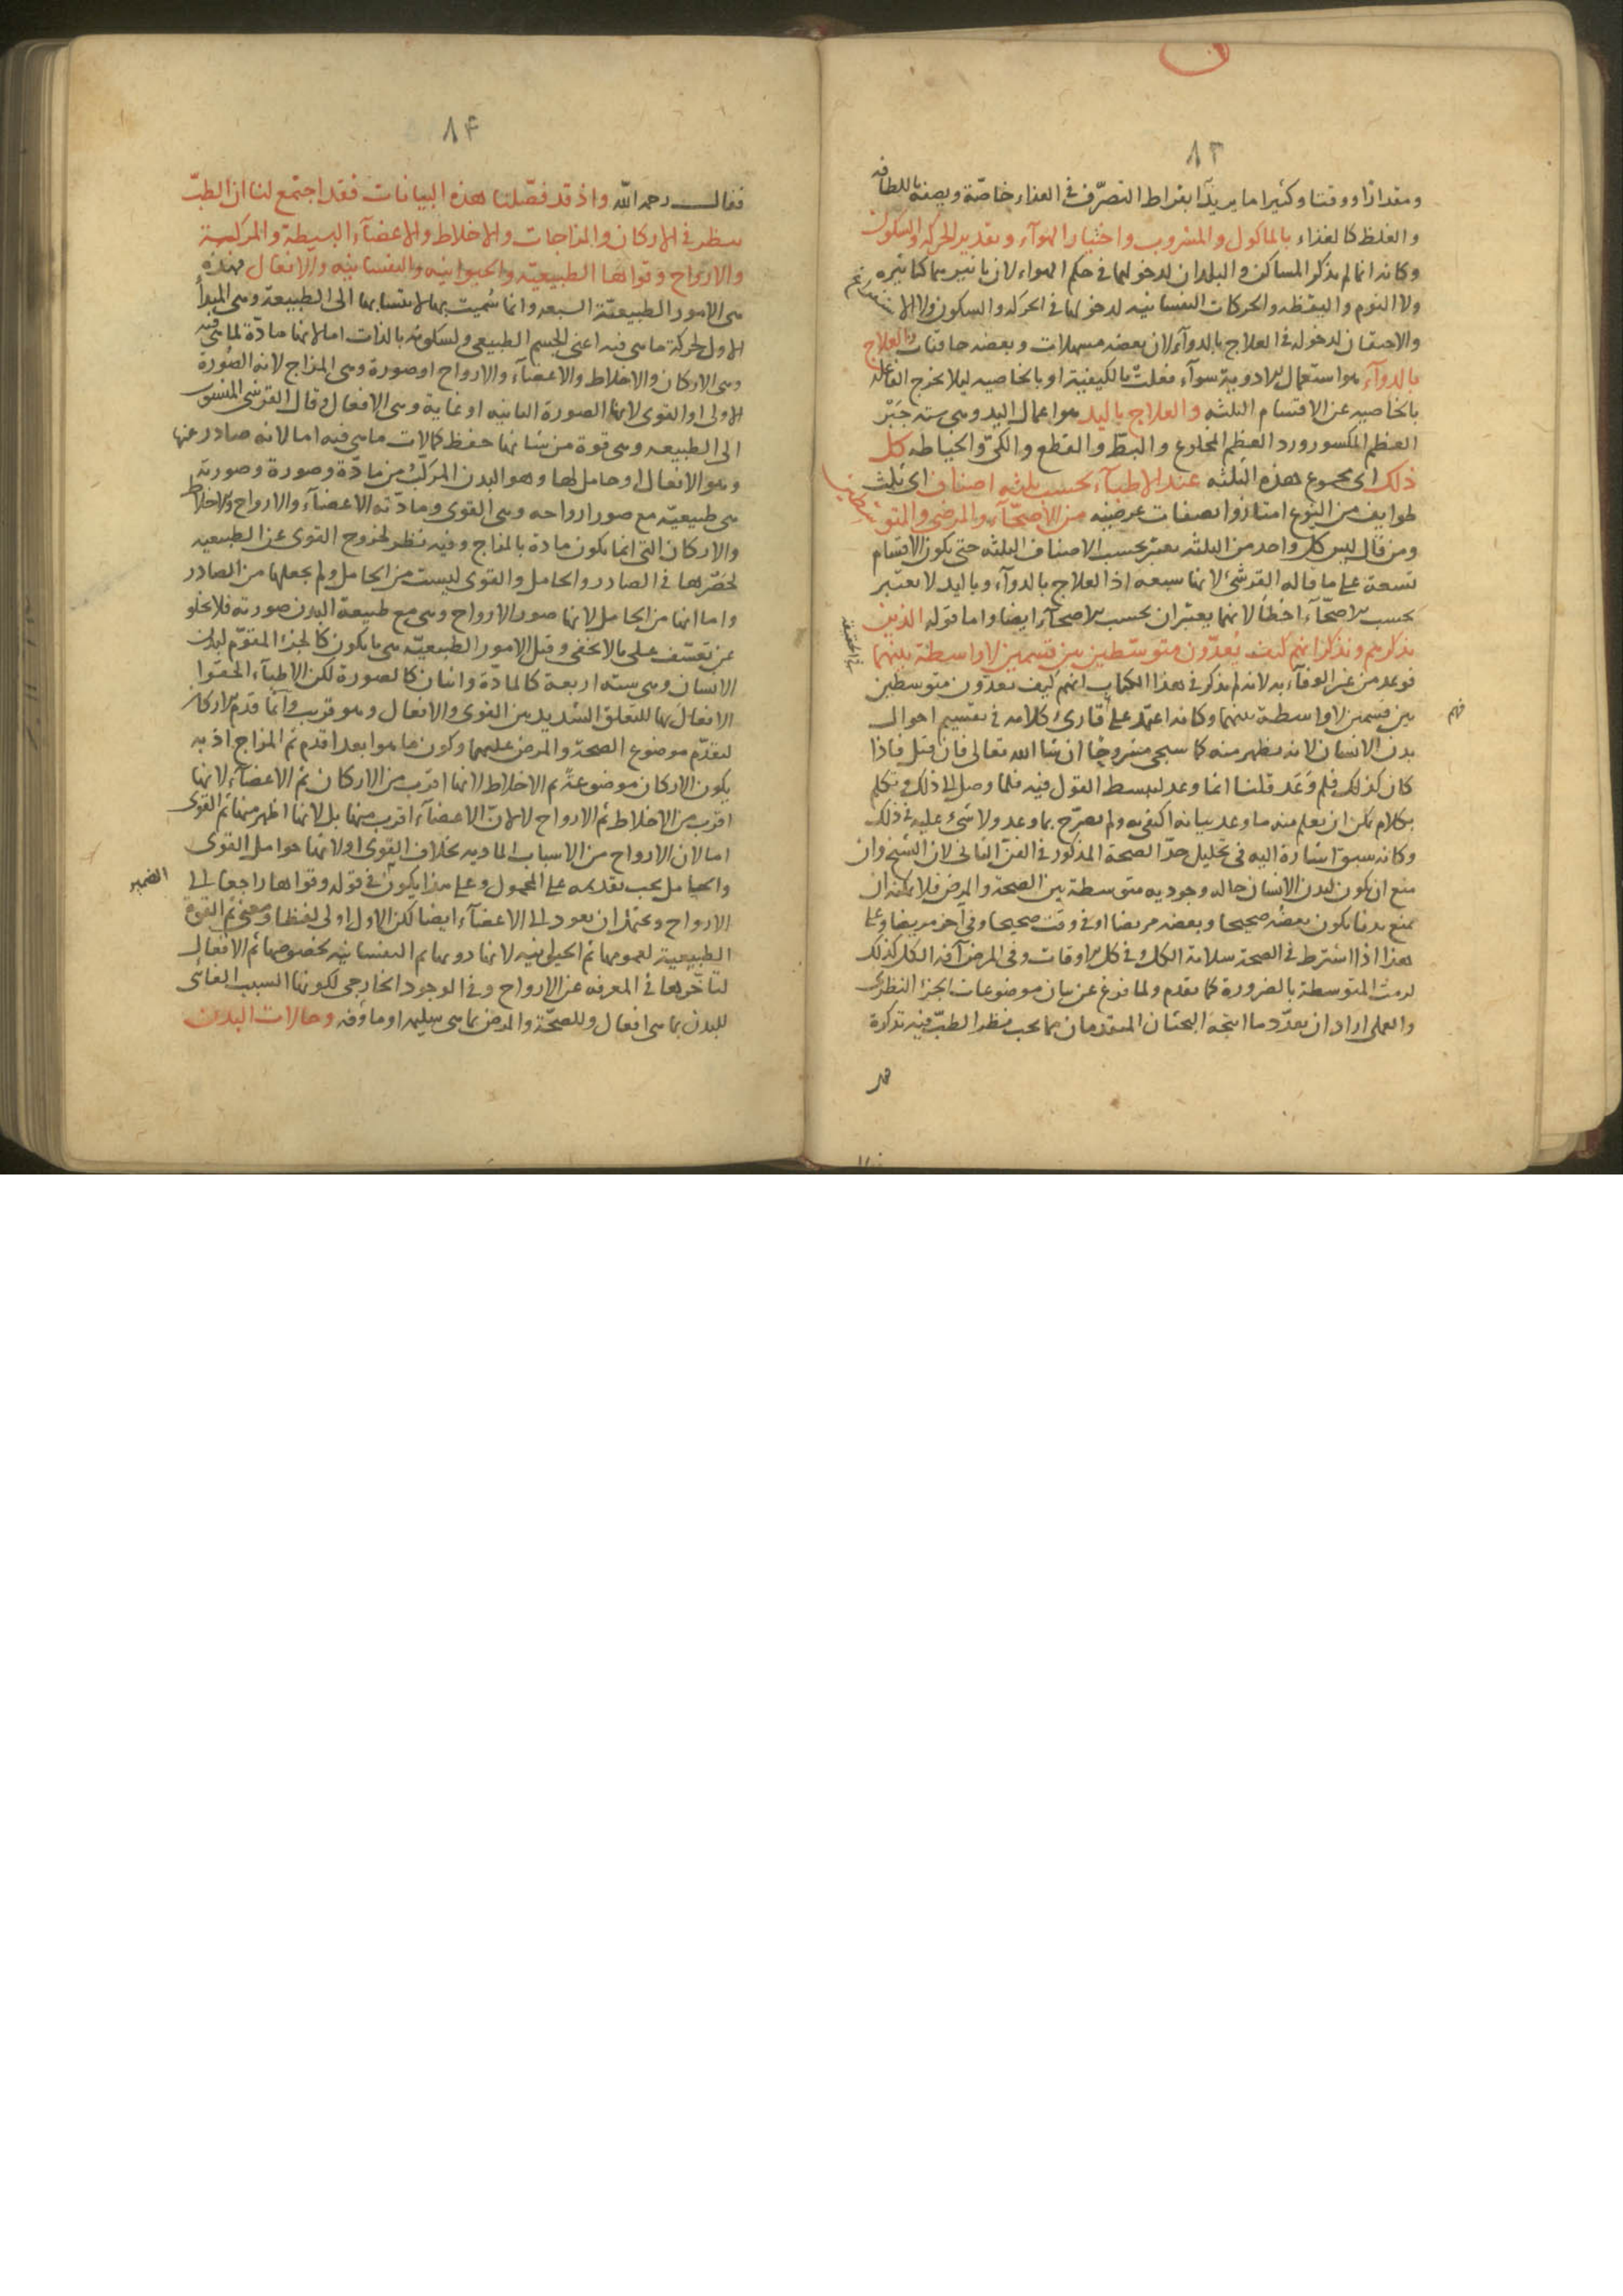 ٨٣
ومقدارًا ووقتا وكثيرا ما يريد ابقراط التصرّف فى الغذاء خاصّة وبصفة اللطافه
والغلظ كالغذاء بالماكول والمشروب واختيار الهوآء وتقدير الحركة والسكون
وكانه انما لم يذكر المساكن والبلدان لدخولهما فى حكم الهواء لان تاثيرهما كتاثيره
ولا النوم واليقظه والحركات النفسانيه لدخولها فى الحركه والسكون ولا الاستفراغ
والاحتقان لدخوله فى العلاج بالدوآء لان بعضه مسهلات وبعضه حابسات والعلاج
بالدوآء هو استعمال الادوية سوآء فعلت بالكيفية او بالخاصيه ليلا يخرج الفاعله
بالخاصيه عن الاقسام الثلثه والعلاج باليد هو اعمال اليد وهى سته جَبْر
العظم المكسور ورد العظم المخلوع والبط والقطع والكىّ والخياطه كل
ذلك اى مجموع هذه الثلثه عند الاطبآء بحسب ثلثه اصناف اى ثلث
طوايف من النوع امتازوا بصفات عرضيّه من الاصحّآء والمرضى والمتوسطين
ومن قال ليس كل واحد من الثلثه يعتبر بحسب الاصناف الثلثه حتى يكون الاقسام
تسعة على ما قاله القرشى لانها سبعه اذ العلاج بالدوآء وباليد لا يعتبر
بحسب الاصحّآء اخطأ لانهما يعتبران بحسب الاصحآء ايضا واما قوله الذين
نذكرهم ونذكر انهم كيف يُعدّون متوسّطين بين قسمين لا واسطة بينهما
فى الحقيقة
فوعد من غير الوفآء به لانه لم يذكر فى هذا الكتاب انهم كيف يعدّون متوسطين
بين قسمين لا واسطة بينهما وكانه اعتمد على قارئ كلامه فى تقسيم احوال
فهم
بدن الانسان لانه يظهر منه كما سيجى مشروحًا ان شا الله تعالى فان قيل فاذا
كان كذلك فلم وَعَد قلنا انما وعد ليبسط القول فيه فلما وصل الى ذلك وتكلم
بكلام يمكن ان يعلم منه ما وعد بيانه اكتفى به ولم يصرّح بما وعد ولا شئ عليه فى ذلك
وكانه سبق اشارة اليه فى تحليل حدّ الصحة المذكور فى الفنّ الثانى لان الشيخ وان
منع ان يكون لبدن الانسان حاله وجوديه متوسطة بين الصحة والمرض فلا يمكنه ان
يمنع بدنا يكون بعضه صحيحا وبعضه مريضا او فى وقت صحيحا وفى آخر مريضا وعلى
هذا اذا اشترط فى الصحة سلامة الكل فى كل الاوقات وفى المرض آفة الكل كذلك
لزمت المتوسطة بالضرورة كما تقدم ولما فرغ عن بيان موضوعات الجزء النظرىّ
والعملى اراد ان يعدّد ما انتجه البحثان المتقدمان مما يجب نظر الطبّ فيه تذكرة
٨٤
فقال رحمه اللّه واذ قد فصّلنا هذه البيانات فقد اجتمع لنا ان الطبّ
ينظر فى الاركان والمزاجات والاخلاط والاعضآء البسيطة والمركبة
والارواح وقواها الطبيعيّة والحيوانيه والنفسانيه والافعال فهذه
هى الامور الطبيعيّة السبعه وانما سُميت بها لانتسابها الى الطبيعة وهى المبدأ
الاول لحركة ما هى فيه اعنى الجسم الطبيعى ولسكونه بالذات اما لانها مادّة لما هى فيه
وهى الاركان والاخلاط والاعضآء والارواح او صورة وهى المزاج لانه الصُورة
الاولى او القوى لانها الصورة الثانيه او غاية وهى الافعال وقال القرشى المنسوب
الى الطبيعه وهى قوة من شانها حفظ كمالات ما هى فيه اما لانه صادر عنها
وهو الافعال او حامل لها وهو البدن المركّب من مادّة وصورة وصورته
هى طبيعيّه مع صور ارواحه وهى القوى ومادّته الاعضآء والارواح والاخلاط
والاركان التى انما يكون مادة بالمزاج وفيه نظر لخروج القوى عن الطبيعيه
لحَصْرها فى الصادر والحامل والقوى ليست من الحامل ولم يجعلها من الصادر
واما انها من الحامل لانها صور الارواح وهى مع طبيعة البدن صورته فلا يخلو
عن تعسّف على ما لا يخفى وقيل الامور الطبيعيّه هى ما يكون كالجزء المقوّم لبدن
الانسان وهى سته اربعة كالمادّة واثنان كالصورة لكن الاطبآء الحقوا
الافعال بها للتعلق الشديد بين القوى والافعال وهو قريب وانّما قدّم الاركان
لتقدّم موضوع الصحة والمرض عليهما وكون ما هو ابعد اقدم ثم المزاج اذ به
يكون الاركان موضوعةً ثم الاخلاط لانها اقرب من الاركان ثم الاعضآء لانها
اقرب من الاخلاط ثم الارواح لا لانّ الاعضآء اقرب منها بل لانها اظهر منها ثم القوى
اما لان الارواح من الاسباب الماديه بخلاف القوى او لانها حوامل القوى
والحامل يجب تقديمه على المحمول وعلى هذا يكون فى قوله وقواها راجعا الى
الضمير
الارواح ويحتمل ان يعود الى الاعضآء ايضا لكن الاول اولى لفظا ومعنى ثم القوة
الطبيعية لعمومها ثم الحيوانيه لانها دونها ثم النفسانيه لخصوصها ثم الافعال
لتأخّرها فى المعرفه عن الارواح وفى الوجود الخارجى لكونها السبب الغائى
للبدن بما هى افعال وللصحّة والمرض بما هى سليمه او مأوفه وحالات البدن